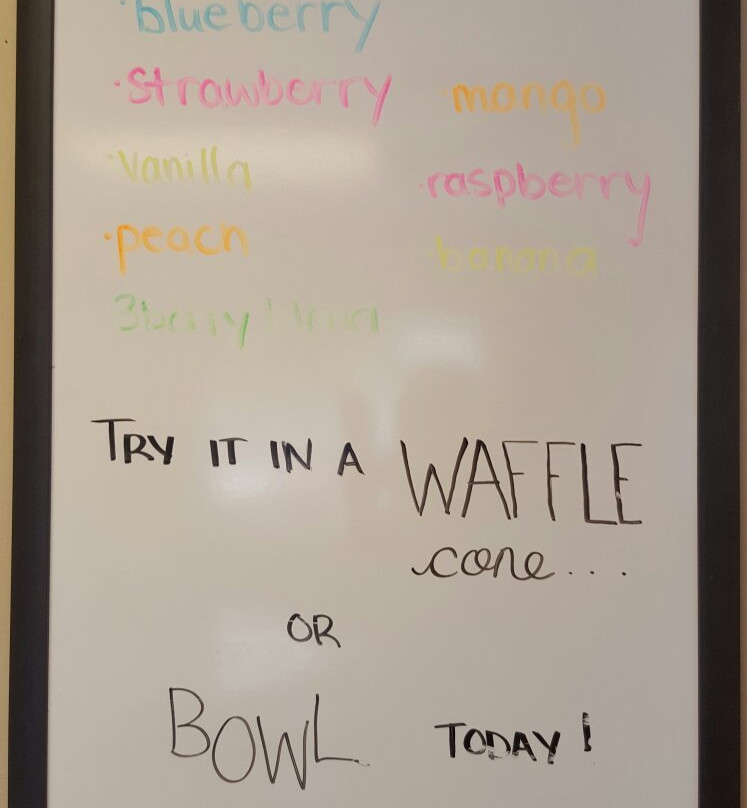 ·blueberry
·strawberry
·vanilla
·peach
3berry blend
·mango
·raspberry
·banana
TRY IT IN A WAFFLE
cone...
OR
BOWL TODAY!